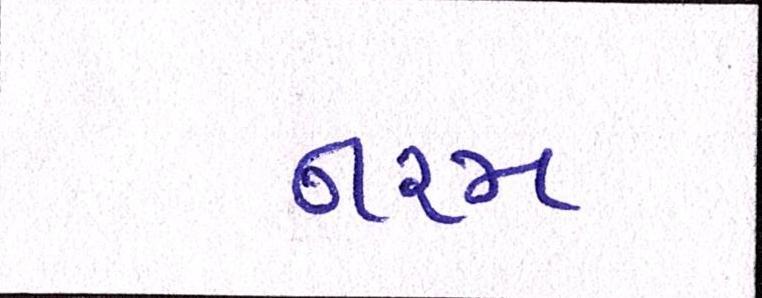 નરમ